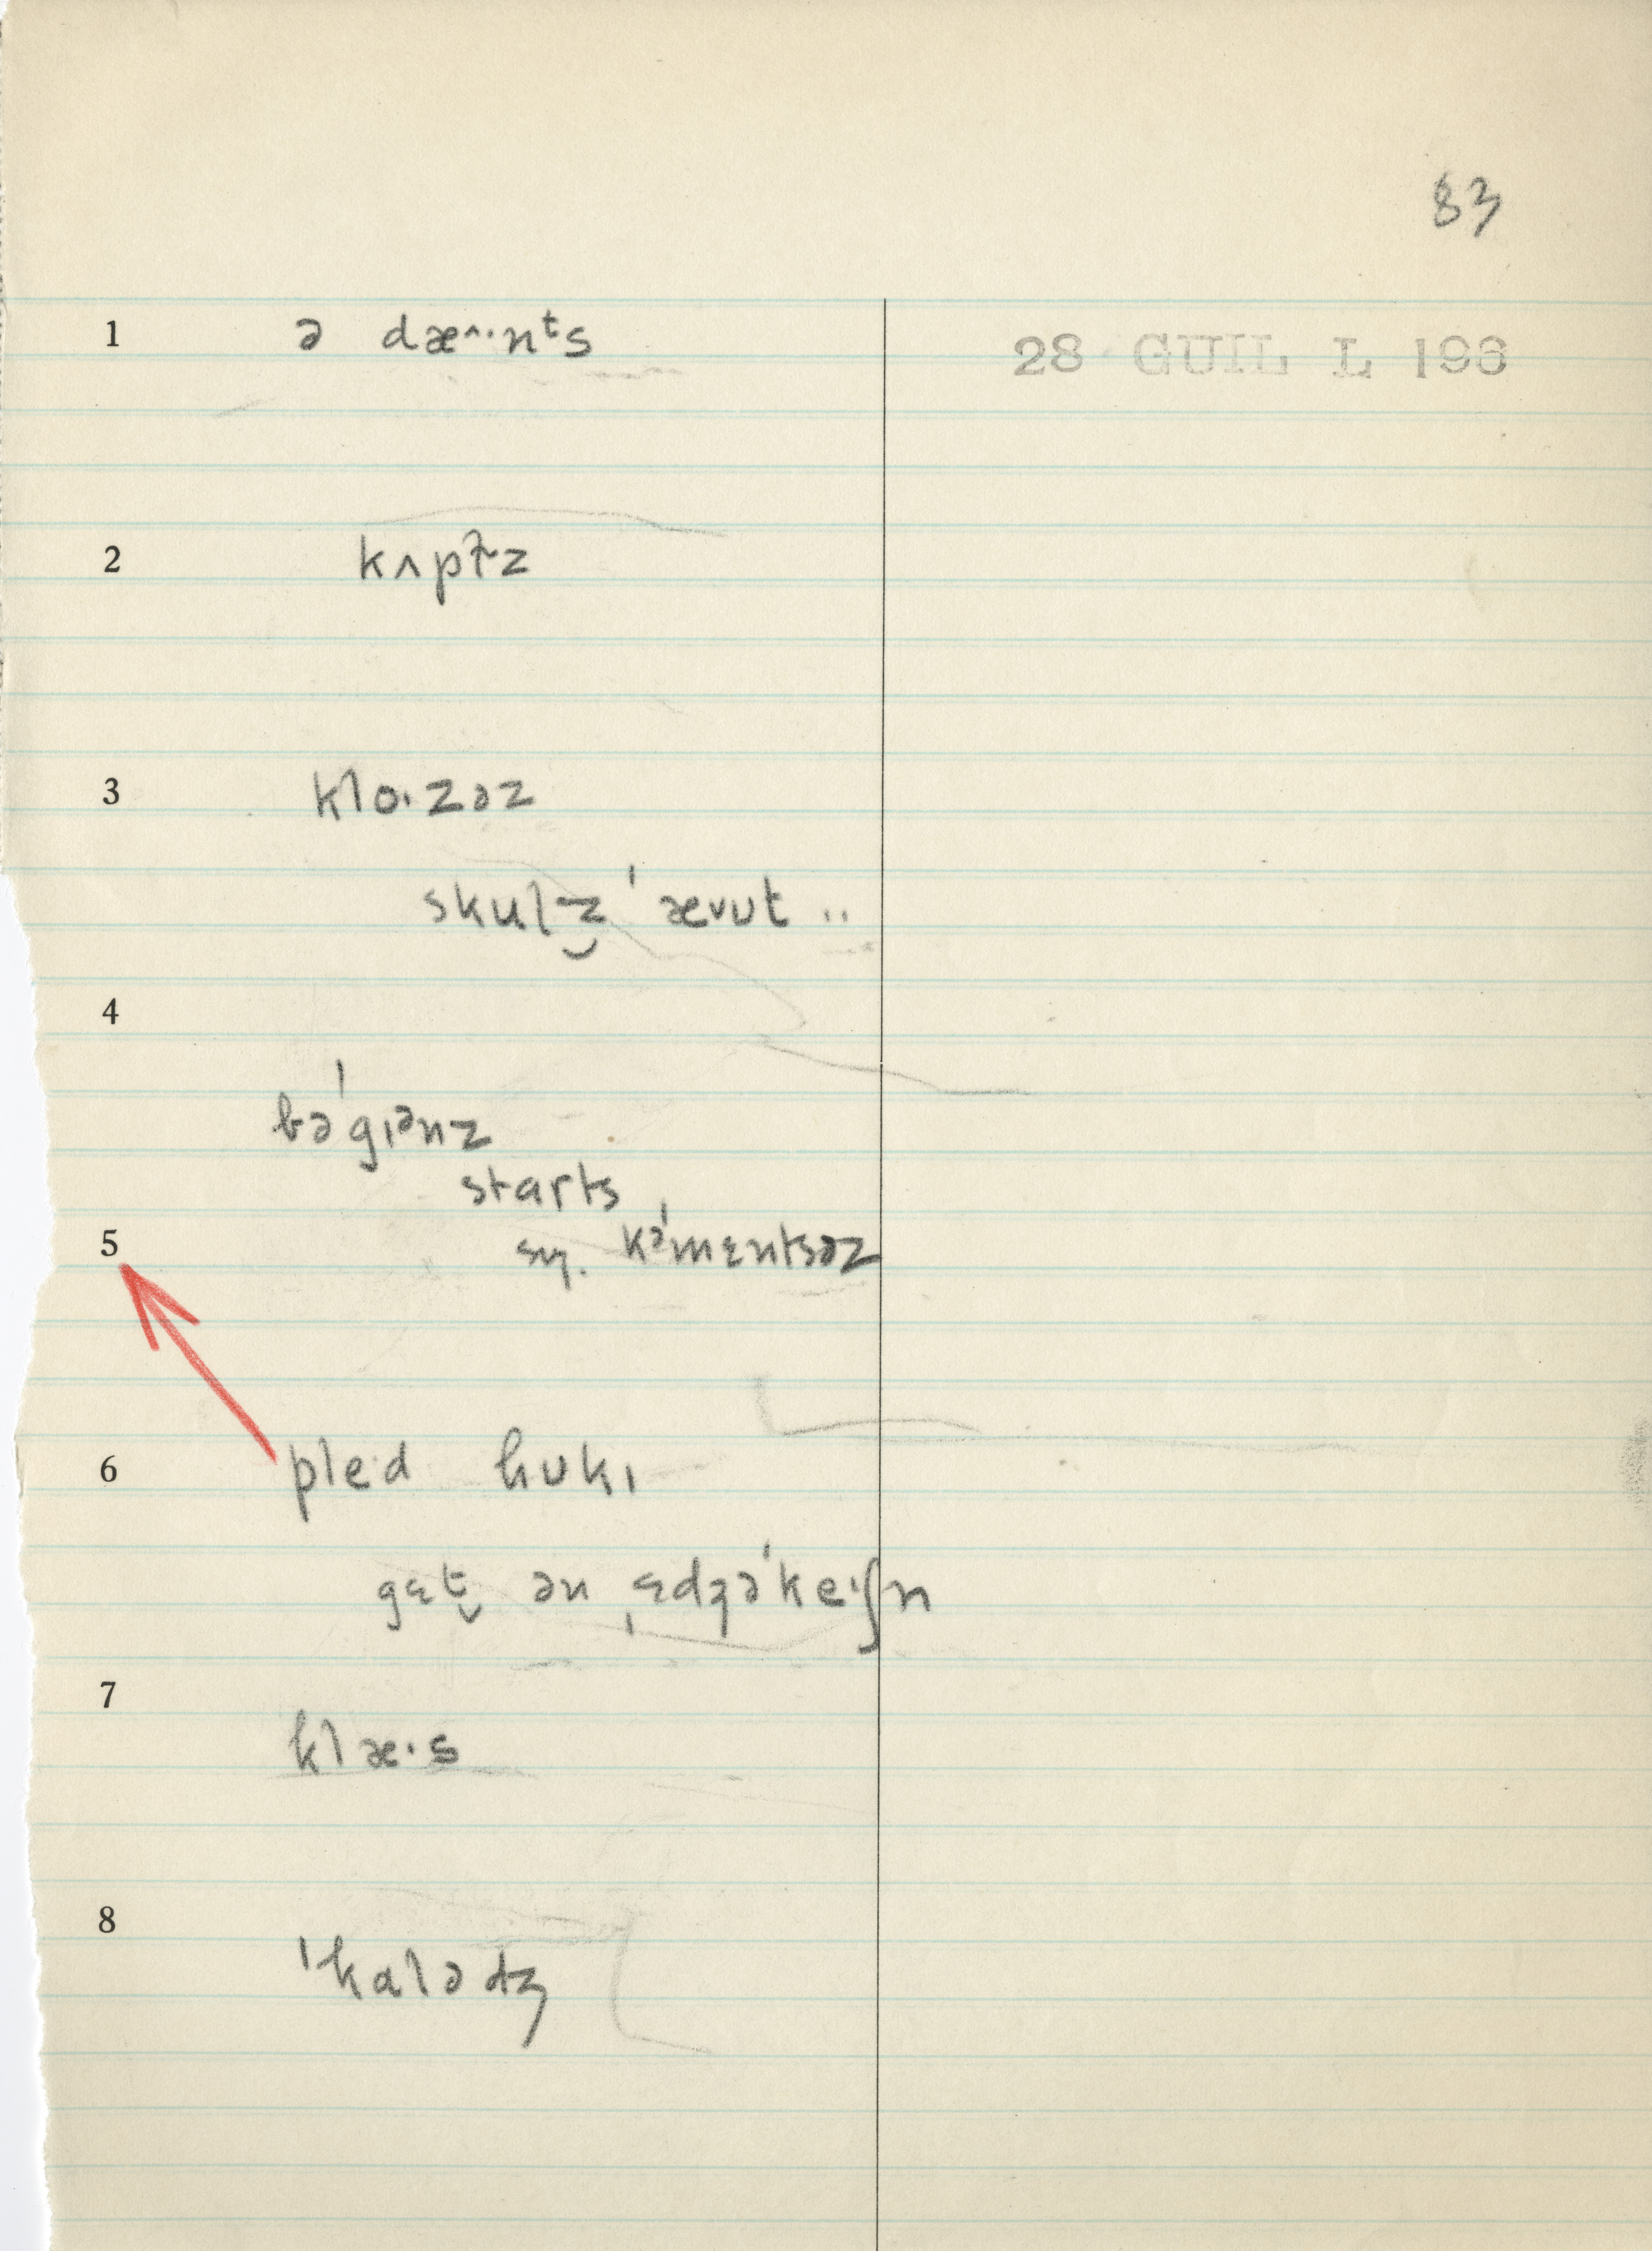 83
1 ə dæ^·nᵗs
28 GUIL L 196
2 kʌptɚz
3 klo·zəz
skulz̬ ˈævʊt ..
4
bəˈgɪᵊnz
starts
5 sɪŋ. kəˈmɛntsəz
6 ple·d hʊkɪ
gɛt̬ ən ˌɛdʒəˈke·ʃn
7
klæ·s
8
ˈkalədʒ